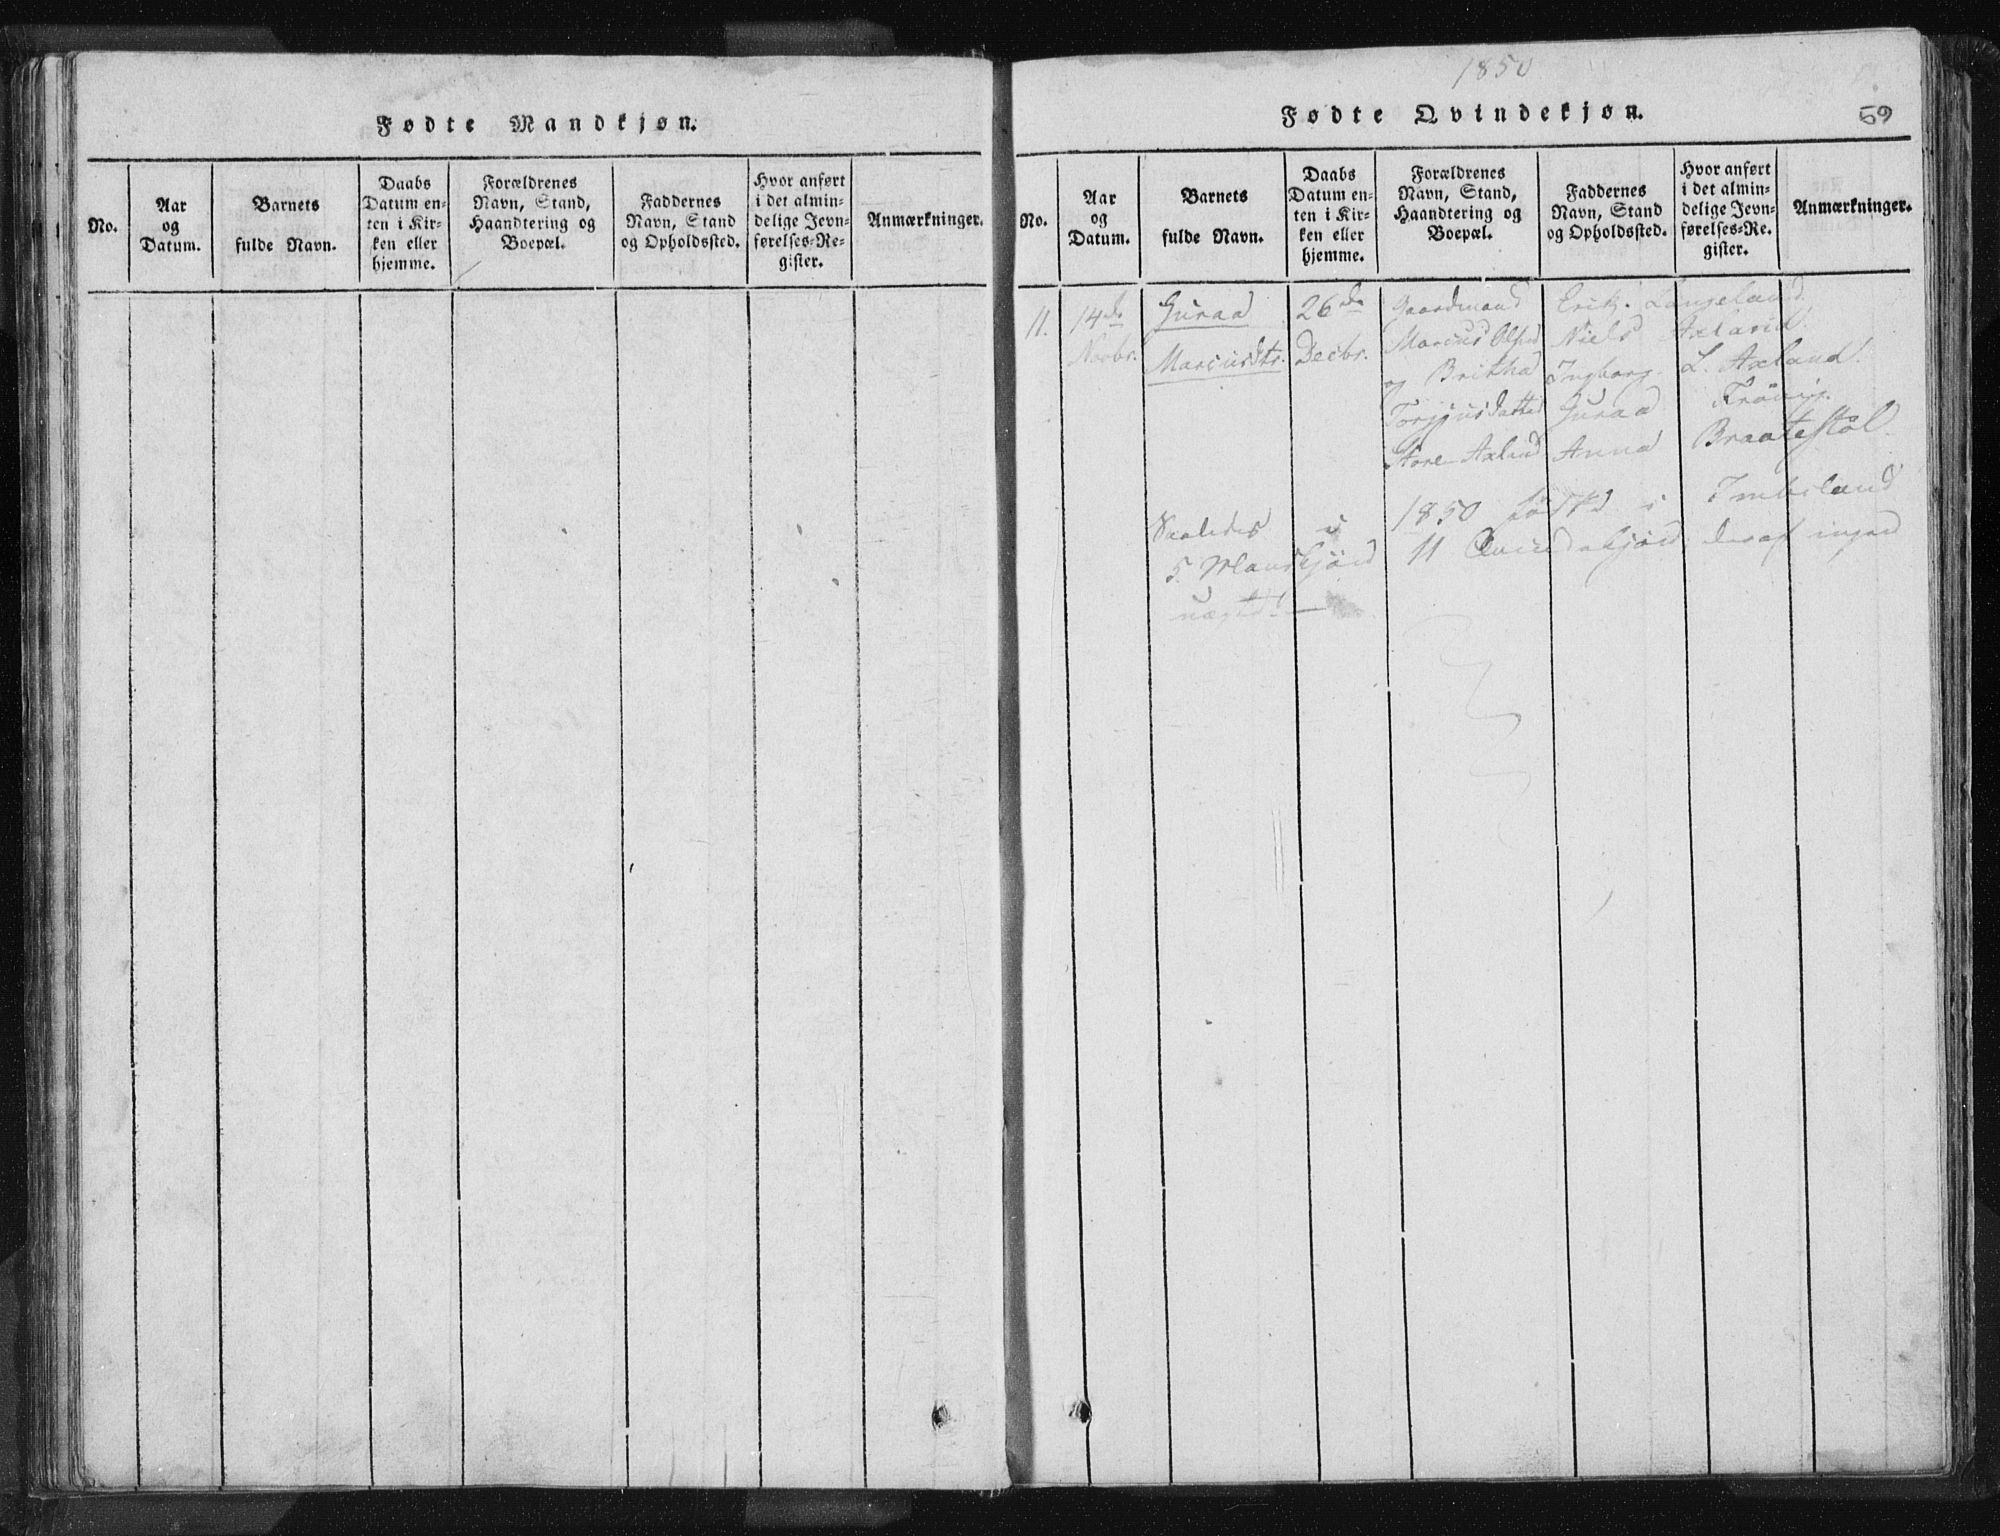 Fødte Mandkjøn.
No.
Aar
og
Datum.
Barnets
fulde Navn.
Daabs
Datum en-
ten i Kir-
ken eller
hjemme.
Forældrenes
Navn, Stand,
Haandtering og
Boepæl.
Faddernes
Navn, Stand
og Opholdssted.
Hvor anført
i det almin-
delige Jevn-
førelses-Re-
gister.
Anmærkninger.
1850
Fødte Qvindekjøn.
59
No.
Aar
og
Datum.
Barnets
fulde Navn.
Daabs
Datum en-
ten i Kir-
ken eller
hjemme.
Forældrenes
Navn, Stand,
Haandtering og
Boepæl.
Faddernes
Navn, Stand
og Opholdssted.
Hvor anført
i det almin-
delige Jevn-
førelses-Re-
gister.
Anmærkninger.
11.
14de
Novbr.
Guraa
Marcusdtr.
26de
Decbr.
Gaardmand
Marcus Olsen
og Britha
Torgjusdatter
Store Axland
Erik Langeland
Niels Axland
Ingborg L. Axland
Guraa
Anna Braatestöl
Saaledes i 1850 fødte i Imbsland
5 Mandkjön 11 Qvindekjön deraf ingen
uægte!